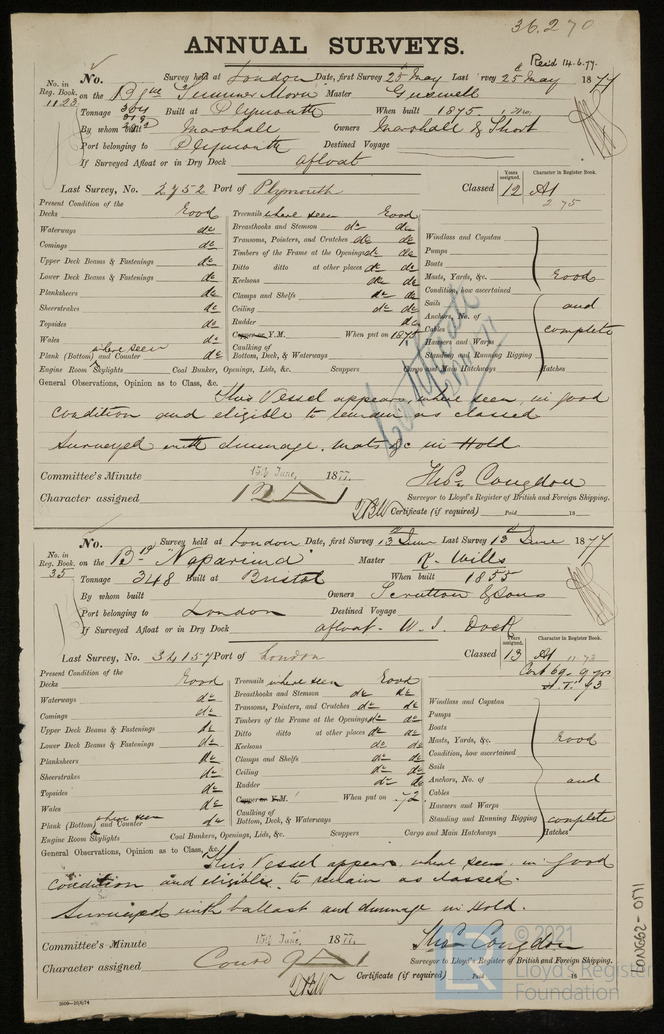 36.270
ANNUAL SURVEYS.
Recd 14.6.77.
No. Survey held at London Date, first Survey 25 May Last Survey 25 May 1877
No. in Reg. Book. 1123 on the Bk. "Summer Morn" Master
Tonnage 304 Built at Plymouth When built 1875
By whom built Marshall Owners Marshall & Short
Port belonging to Plymouth Destined Voyage
If Surveyed Afloat or in Dry Dock afloat
Last Survey, No. 2752 Port of Plymouth Classed Years assigned. 12 Character in Register Book. A1
2 75
Present Condition of the
Decks Good
Waterways do
Comings do
Upper Deck Beams & Fastenings do
Lower Deck Beams & Fastenings do
Planksheers do
Sheerstrakes do
Topsides do
Wales do
Plank (Bottom) and Counter where seen do
Treenails where seen Good
Breasthooks and Stemson do do
Transoms, Pointers, and Crutches do do
Timbers of the Frame at the Openings do do
Ditto ditto at other places do do
Keelsons do do
Clamps and Shelfs do do
Ceiling do do
Rudder do
Copper or Y.M. When put on 1875
Caulking of
Bottom, Deck, & Waterways
Windlass and Capstan
Pumps
Boats
Masts, Yards, &c.
Condition, how ascertained
Sails
Anchors, No. of
Cables
Hawsers and Warps
Standing and Running Rigging
Good
and
complete
Engine Room Skylights Coal Bunker, Openings, Lids, &c. Scuppers Cargo and Main Hatchways Hatches
General Observations, Opinion as to Class, &c.
This Vessel appears, where seen, in good
condition and eligible to remain as classed
Surveyed with dunnage, mats &c in Hold
Committee's Minute 15th June, 1877.
Character assigned 12 A1
Thos. Congdon
Surveyor to Lloyd's Register of British and Foreign Shipping.
Certificate (if required) Paid 18
No. Survey held at London Date, first Survey 13 June Last Survey 13 June 1877
No. in Reg. Book. 35 on the "Naparima" Master R. Wills
Tonnage 348 Built at Bristol When built 1855
By whom built Owners Scrutton & Sons
Port belonging to London Destined Voyage
If Surveyed Afloat or in Dry Dock afloat - W. I. Dock
Last Survey, No. 34157 Port of London Classed Years assigned. 13 Character in Register Book. A1 11.73
Present Condition of the
Decks Good
Waterways do
Comings do
Upper Deck Beams & Fastenings do
Lower Deck Beams & Fastenings do
Planksheers do
Sheerstrakes do
Topsides do
Wales do
Plank (Bottom) and Counter where seen do
Treenails where seen Good
Breasthooks and Stemson do do
Transoms, Pointers, and Crutches do do
Timbers of the Frame at the Openings do do
Ditto ditto at other places do do
Keelsons do do
Clamps and Shelfs do do
Ceiling do do
Rudder do do
Copper or Y.M. When put on 72
Caulking of
Bottom, Deck, & Waterways
Windlass and Capstan
Pumps
Boats
Masts, Yards, &c.
Condition, how ascertained
Sails
Anchors, No. of
Cables
Hawsers and Warps
Standing and Running Rigging
Good
and
complete
Engine Room Skylights Coal Bunkers, Openings, Lids, &c. Scuppers Cargo and Main Hatchways Hatches
General Observations, Opinion as to Class, &c.
This Vessel appears, where seen, in good
condition and eligible to remain as classed.
Surveyed with ballast and dunnage in Hold.
Committee's Minute 15th June, 1877.
Character assigned Cont'd 9 A1
Thos. Congdon
Surveyor to Lloyd's Register of British and Foreign Shipping.
Certificate (if required) Paid 18
LON662-0171
© 2021
Lloyd's Register
Foundation